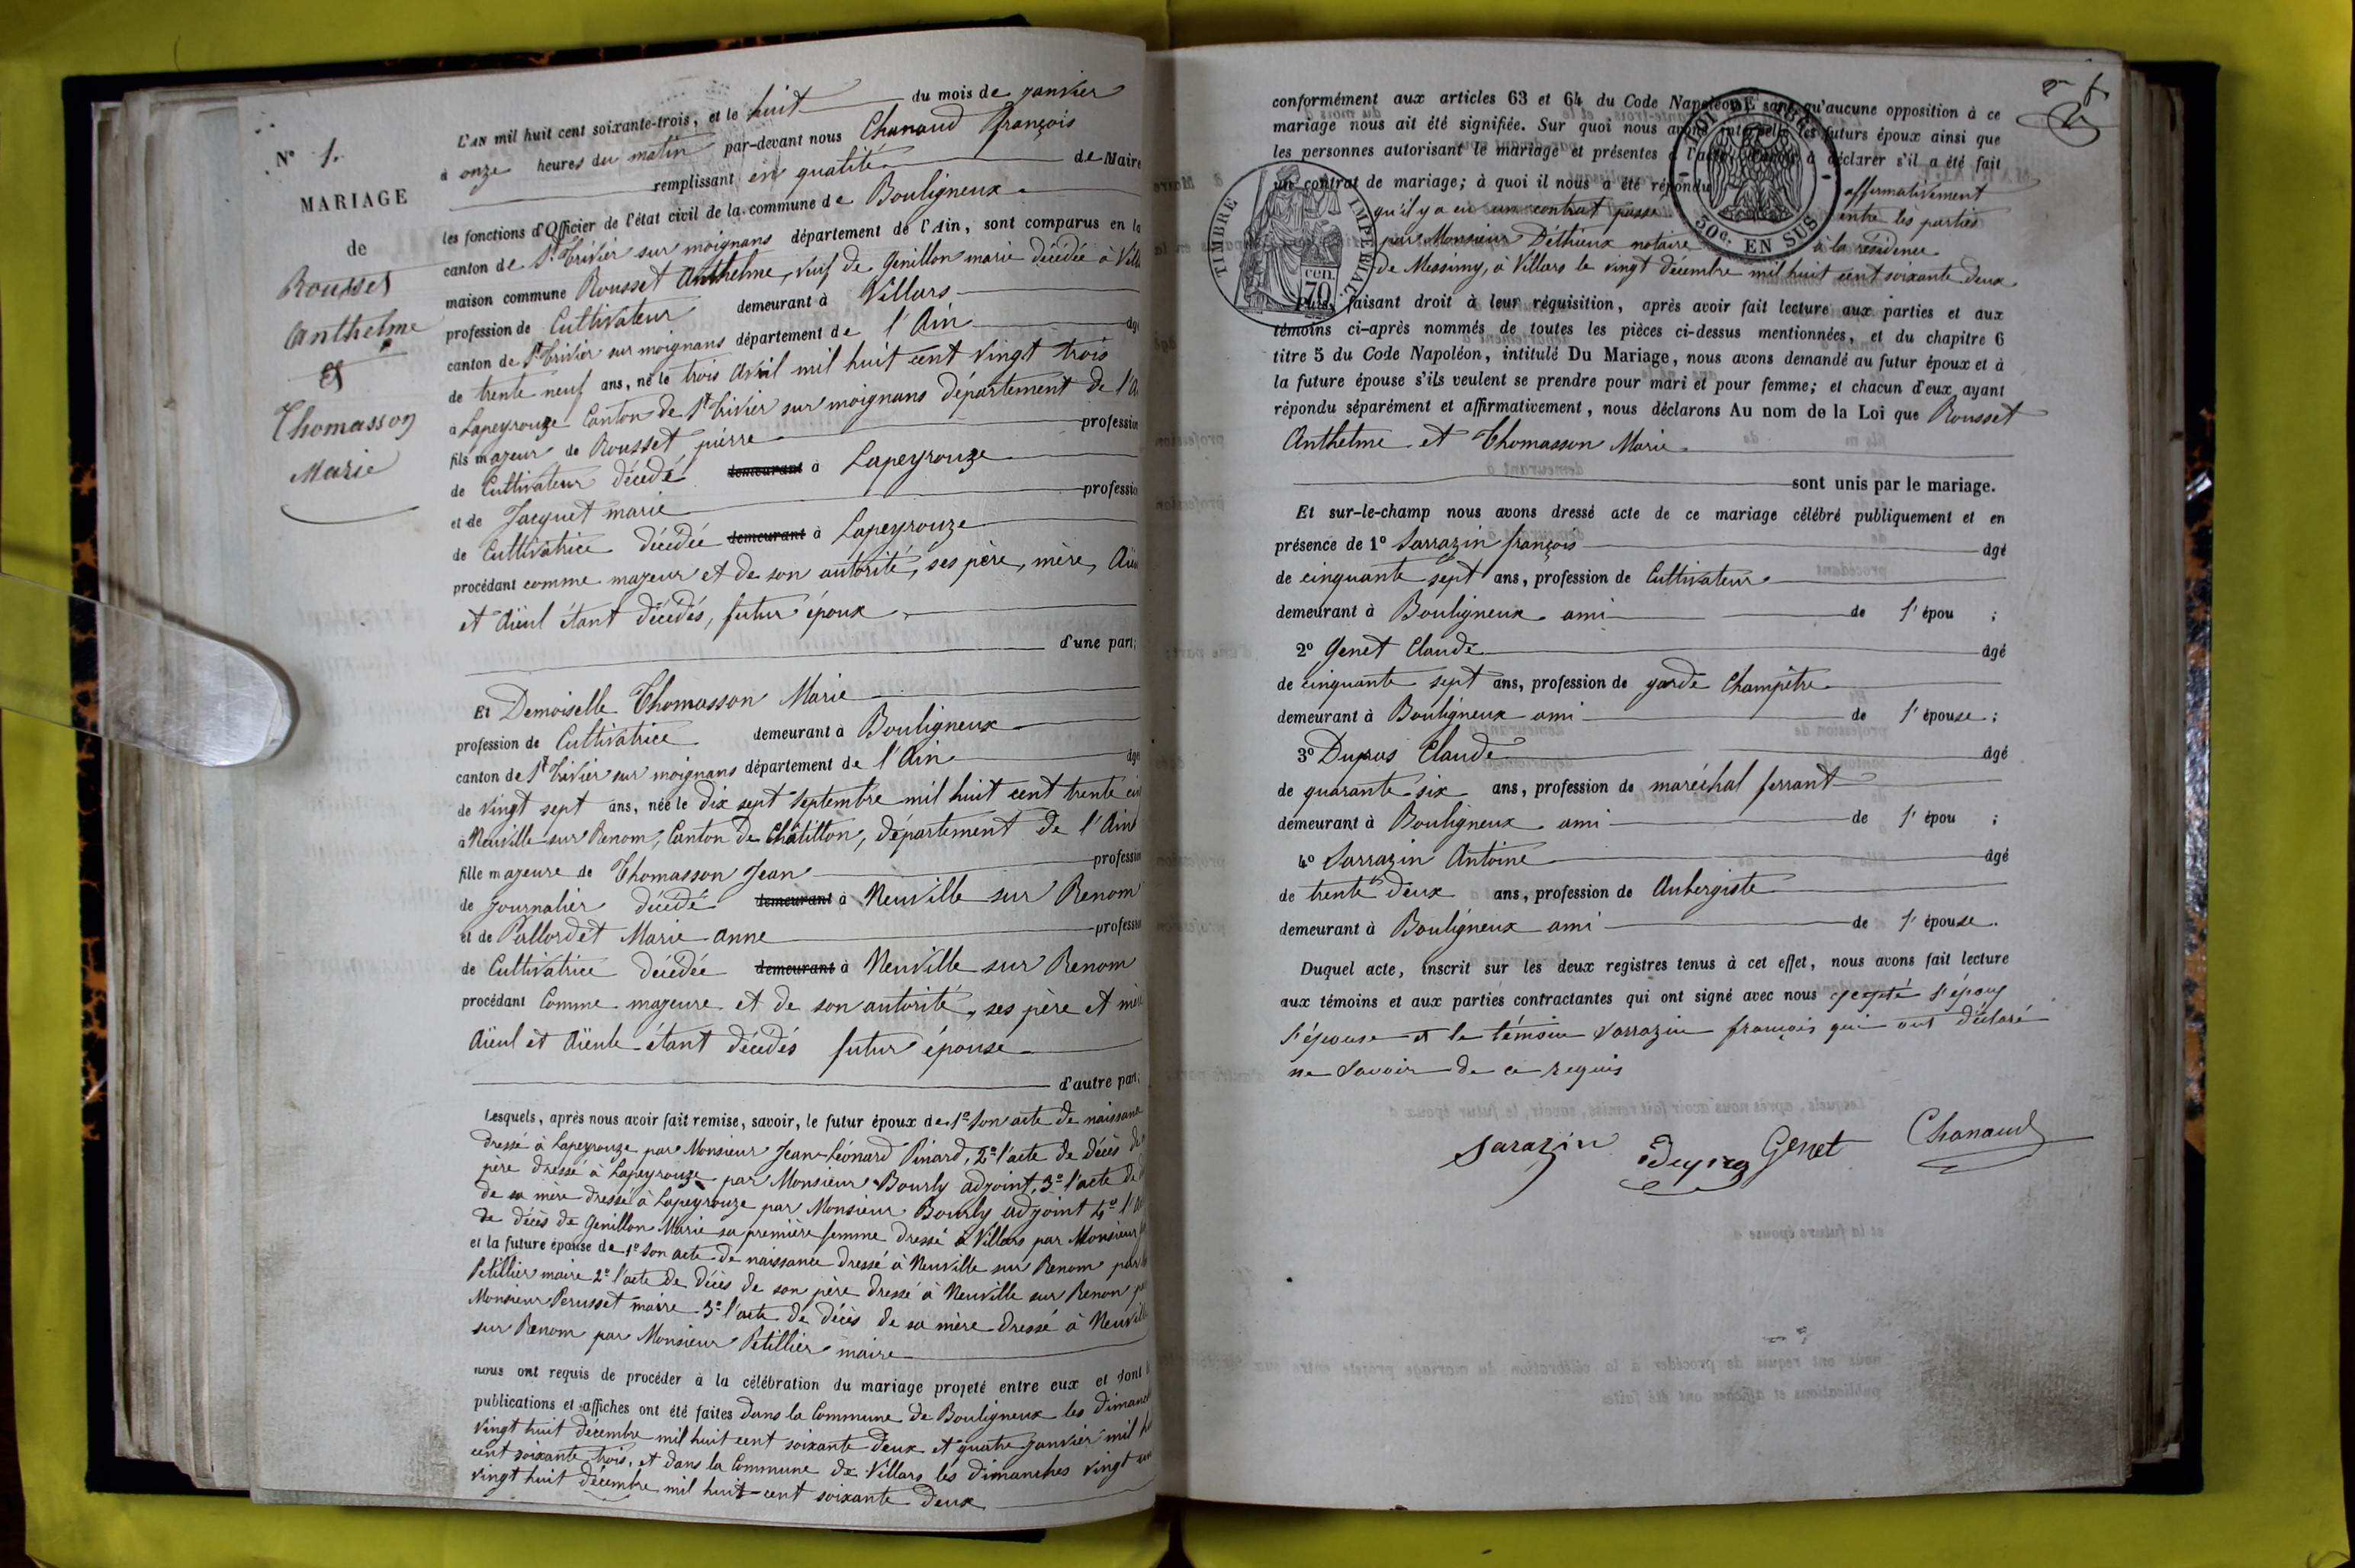 N° 1.
MARIAGE
de
Rousset
Anthelme
et
Thomasson
Marie
L'AN mil huit cent soixante-trois, et le huit du mois de janvier
à onze heures du matin par-devant nous Chanaud François
remplissant en qualité de Maire
les fonctions d'Officier de l'état civil de la commune de Bouligneux
canton de St Trivier sur moignans département de l'Ain, sont comparus en la
maison commune Rousset Anthelme, veuf de Genillon marie décédée à Villa
profession de Cultivateur demeurant à Villars
canton de St Trivier sur moignans département de l'Ain âgé
de trente neuf ans, né le trois avril mil huit cent vingt trois
à Lapeyrouze Canton de St Trivier sur moignans département de l'A
fils majeur de Rousset pierre profession
de Cultivateur décédé demeurant à Lapeyrouze
et de Jacquet marie profession
de Cultivatrice décédée demeurant à Lapeyrouze
procédant comme majeur et de son autorité, ses père, mère, Aïeu
et Aïeul étant décédés, futur époux
d'une part;
Et Demoiselle Thomasson Marie
profession de Cultivatrice demeurant à Bouligneux
canton de St Trivier sur moignans département de l'Ain âgé
de vingt sept ans, née le dix sept septembre mil huit cent trente cin
à Neuville sur Renom, Canton de Châtillon, département de l'Ain
fille majeure de Thomasson Jean profession
de journalier décédé demeurant à Neuville sur Renom
et de Pallordet Marie anne profession
de Cultivatrice décédée demeurant à Neuville sur Renom
procédant Comme majeure et de son autorité, ses père et mère
Aïeul et Aïeule étant décédés futur épouse
d'autre part;
Lesquels, après nous avoir fait remise, savoir, le futur époux de 1° son acte de naissance
dressé à Lapeyrouze par Monsieur Jean-Léonard Pinard, 2° l'acte de décès de
père dressé à Lapeyrouze par Monsieur Bourly adjoint, 3° l'acte de
de sa mère dressé à Lapeyrouze par Monsieur Bourly adjoint 4° l'
de décès de Genillon Marie sa première femme dressé à Villars par Monsieur
et la future épouse de 1° son acte de naissance dressé à Neuville sur Renom par
Petillier maire 2° l'acte de décès de son père dressé à Neuville sur Renon
Monsieur Perusset maire 3° l'acte de décès de sa mère dressé à Neuville
sur Renom par Monsieur Petillier maire
nous ont requis de procéder à la célébration du mariage projeté entre eux et dont
publications et affiches ont été faites dans la Commune de Bouligneux les dimanch
vingt huit décembre mil huit cent soixante deux et quatre janvier mil
cent soixante trois, et dans la Commune de Villars les dimanches vingt
vingt huit décembre mil huit cent soixante deux
conformément aux articles 63 et 64 du Code Napoléon, sans qu'aucune opposition à ce
mariage nous ait été signifiée. Sur quoi nous avons interpellé les futurs époux ainsi que
les personnes autorisant le mariage et présentes à l'acte, à déclarer s'il a été fait
un contrat de mariage; à quoi il nous a été répondu affirmativement
qu'il y a eu un contrat passé entre les parties
par Monsieur Déthieux notaire à la résidence
de Messimy, à Villars le vingt décembre mil huit cent soixante deux
TIMBRE IMPERIAL
70 cen.
50c. EN SUS
Puis, faisant droit à leur réquisition, après avoir fait lecture aux parties et aux
témoins ci-après nommés de toutes les pièces ci-dessus mentionnées, et du chapitre 6
titre 5 du Code Napoléon, intitulé Du Mariage, nous avons demandé au futur époux et à
la future épouse s'ils veulent se prendre pour mari et pour femme; et chacun d'eux, ayant
répondu séparément et affirmativement, nous déclarons Au nom de la Loi que Rousset
Anthelme et Thomasson Marie
sont unis par le mariage.
Et sur-le-champ nous avons dressé acte de ce mariage célébré publiquement et en
présence de 1° Sarrazin françois âgé
de cinquante sept ans, profession de Cultivateur
demeurant à Bouligneux ami de l'épou ;
2° Genet Claude âgé
de cinquante sept ans, profession de garde Champêtre
demeurant à Bouligneux ami de l'épouse ;
3° Dupras Claude âgé
de quarante six ans, profession de maréchal ferrant
demeurant à Bouligneux ami de l'épou ;
4° Sarrazin Antoine âgé
de trente deux ans, profession de Aubergiste
demeurant à Bouligneux ami de l'épouse.
Duquel acte, inscrit sur les deux registres tenus à cet effet, nous avons fait lecture
aux témoins et aux parties contractantes qui ont signé avec nous excepté l'époux
l'épouse et le témoin Sarrazin françois qui ont déclaré
ne savoir de ce requis
Sarazin Genet Chanaud